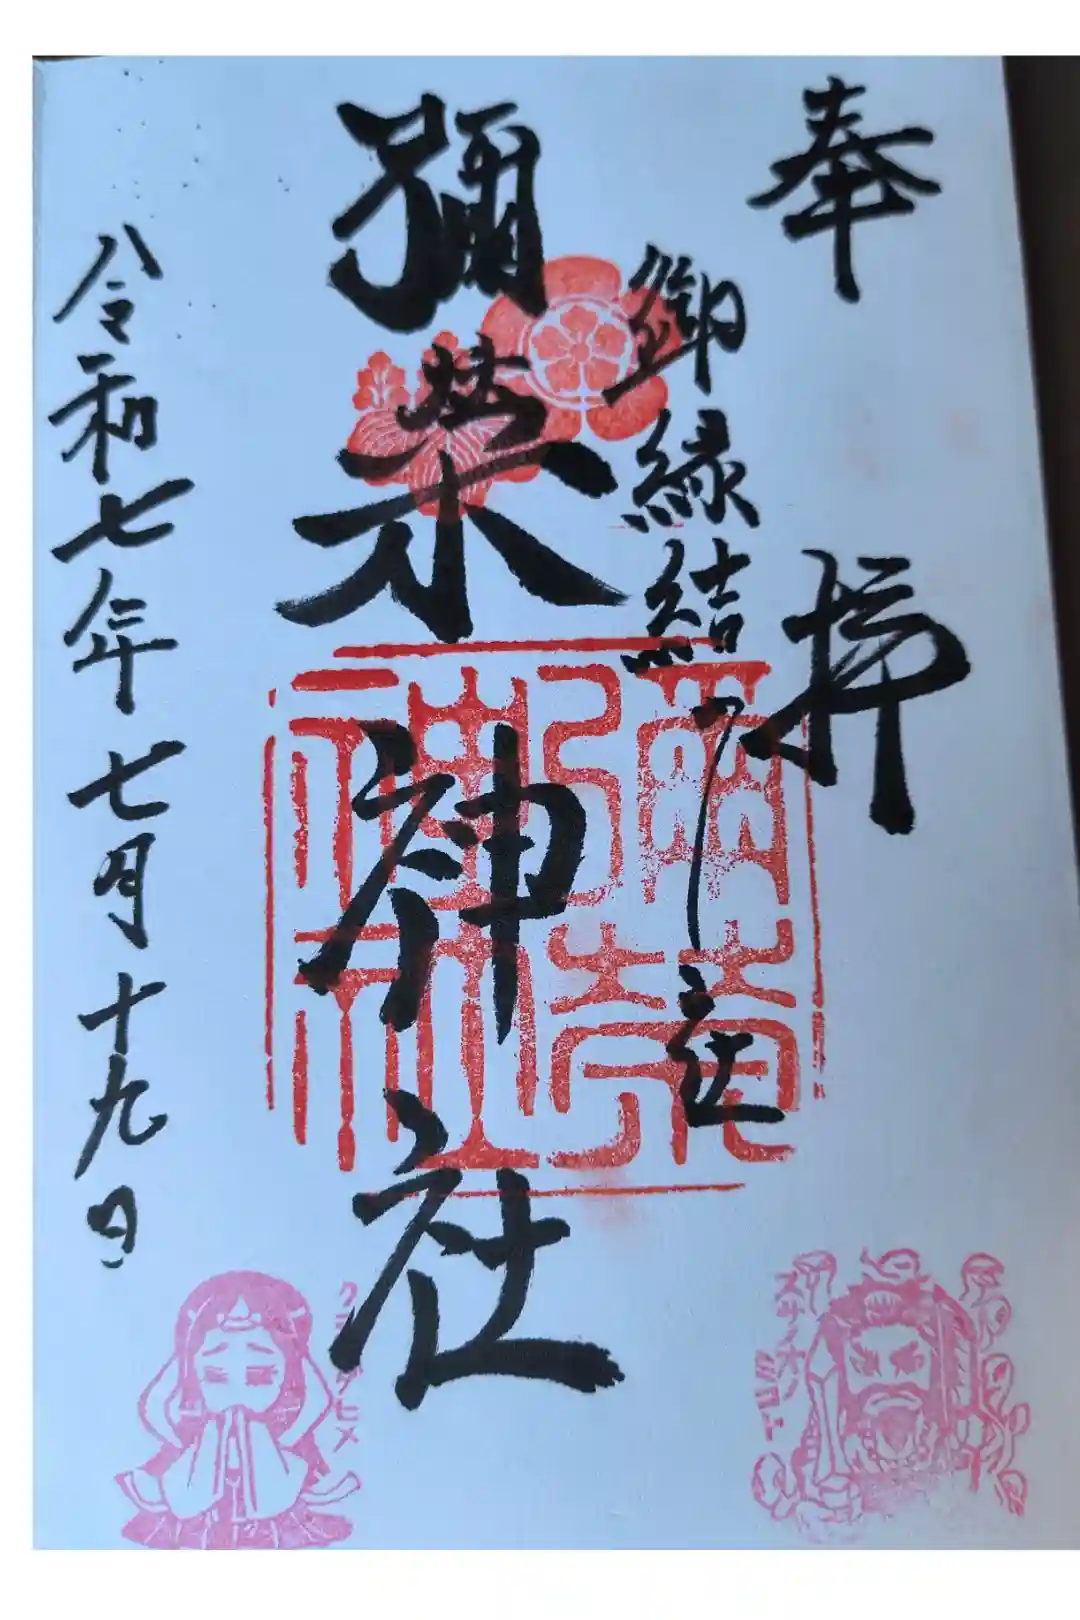 奉拝
御縁結 社
彌栄神社
彌榮神社
令和七年七月十九日
スサノオノ
ミコト
クシナダヒメ